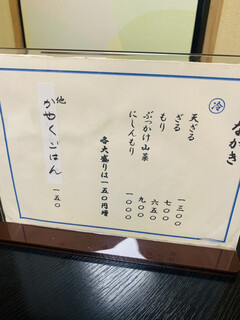 ながき
冷
天ざる 一三〇〇
ざる 七〇〇
もり 六五〇
ぶっかけ山菜 九〇〇
にしんもり 一〇〇〇
各大盛りは一五〇円増
他
かやくごはん 一五〇